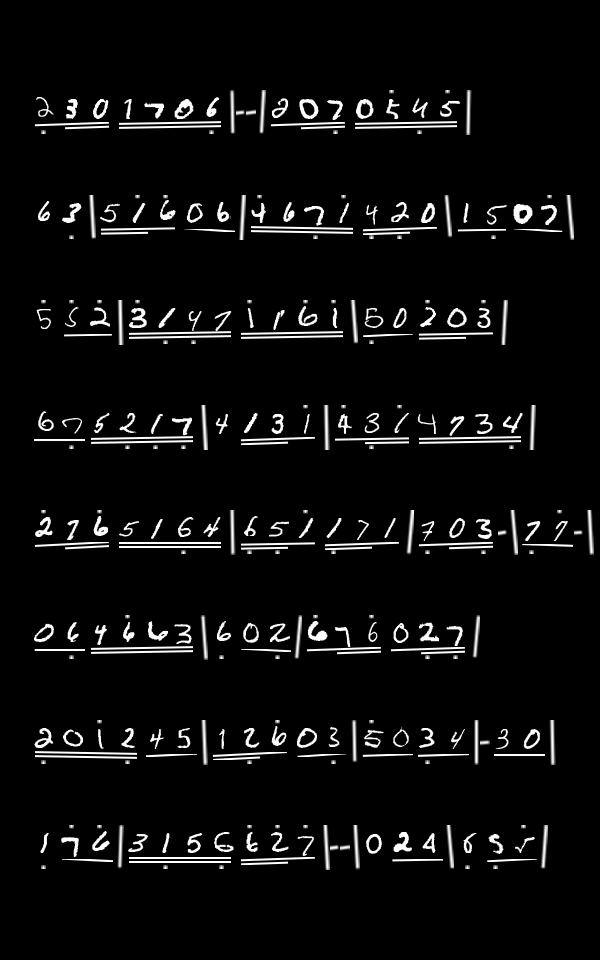 2301706|--|2070545|
63|51606|4671420|1507|
552|31471161|50203|
675217|4131|4314734|
2765164|651171|703-|77-|
064663|602|676027|
201245|12603|5034|-30|
176|3156627|--|024|655|